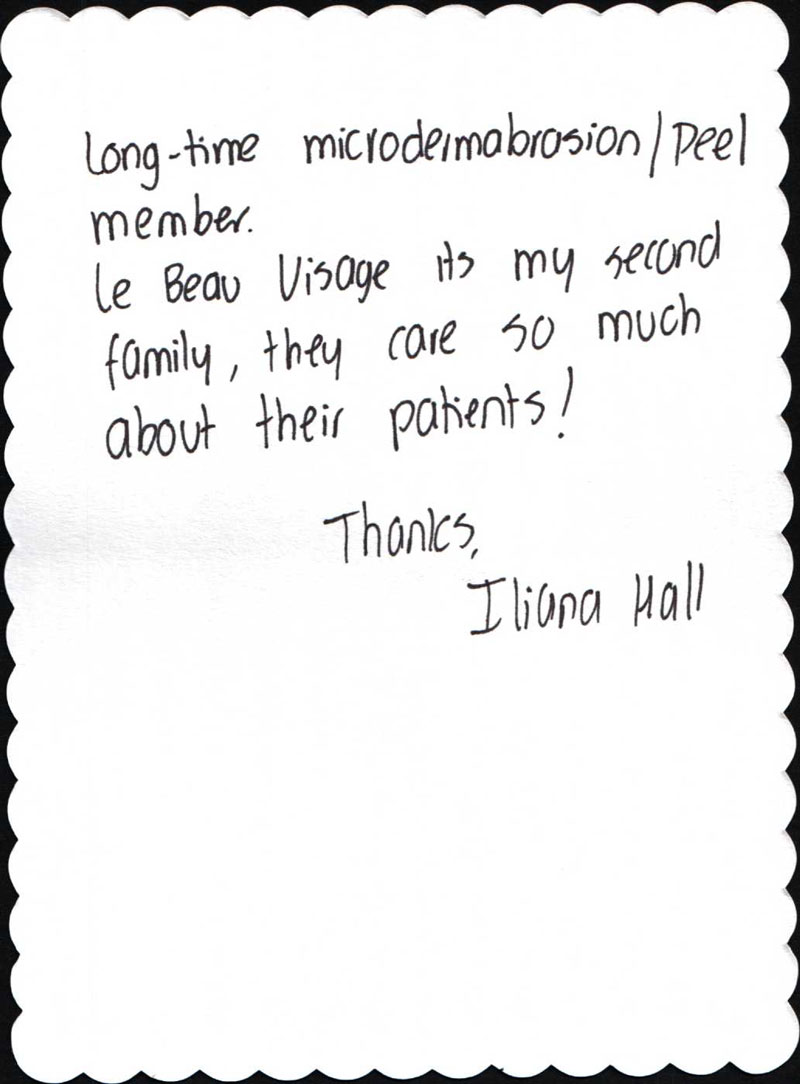 Long-time microdermabrasion/peel
member.
Le Beau Visage its my second
family, they care so much
about their patients!
Thanks,
Iliana Hall